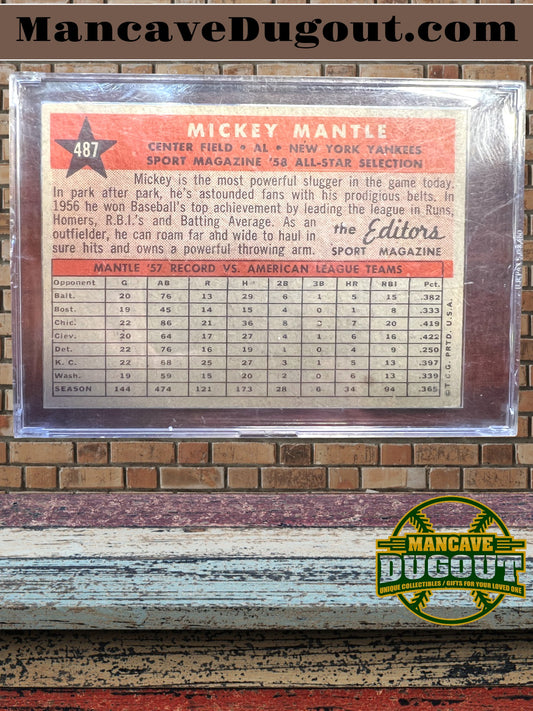 MancaveDugout.com
487
MICKEY MANTLE
CENTER FIELD • AL • NEW YORK YANKEES
SPORT MAGAZINE '58 ALL-STAR SELECTION
Mickey is the most powerful slugger in the game today.
In park after park, he's astounded fans with his prodigious belts. In
1956 he won Baseball's top achievement by leading the league in Runs,
Homers, R.B.I.'s and Batting Average. As an
outfielder, he can roam far and wide to haul in
sure hits and owns a powerful throwing arm.
the Editors
SPORT MAGAZINE
MANTLE '57 RECORD VS. AMERICAN LEAGUE TEAMS
Opponent G AB R H 2B 3B HR RBI Pct.
Balt. 20 76 13 29 6 1 5 15 .382
Bost. 19 45 14 15 4 1 3 8 .333
Chic. 22 86 21 36 8 7 20 .419
Clev. 20 64 20 27 4 1 6 16 .422
Det. 22 76 16 19 1 0 4 9 .250
K. C. 22 68 25 27 3 13 .397
Wash. 19 59 15 20 2 0 6 13 .339
SEASON 144 474 121 173 28 6 34 94 .365
© T.C.G. PRTD. U.S.A.
MANCAVE
DUGOUT
UNIQUE COLLECTIBLES / GIFTS FOR YOUR LOVED ONE